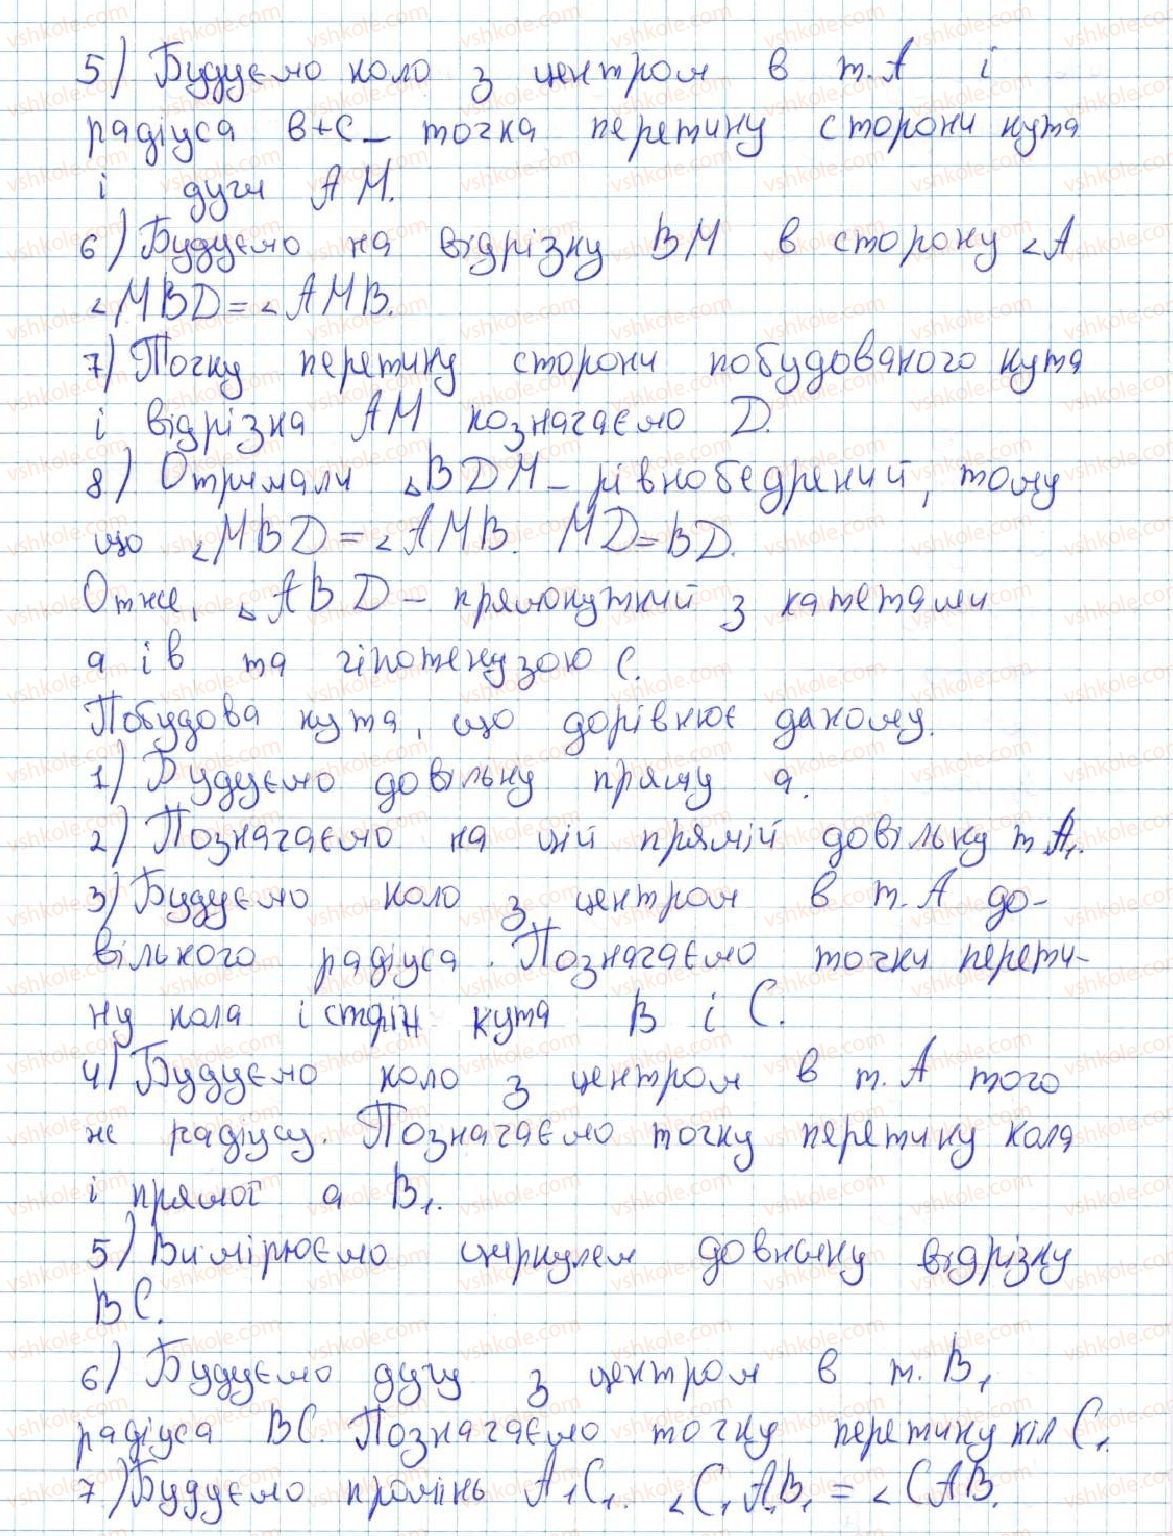 5) Будуємо коло з центром в т. А і
радіуса в+с – точка перетину сторони кута
і дуги АМ.
6) Будуємо на відрізку ВМ в сторону ∠А
∠МВD = ∠АМВ.
7) Точку перетину сторони побудованого кута
і відрізка АМ позначаємо D.
8) Отримали △ВDМ – рівнобедрений, тому
що ∠МВD = ∠АМВ. МD = ВD.
Отже, △АВD – прямокутний з катетами
а і в та гіпотенузою с.
Побудова кута, що дорівнює даному.
1) Будуємо довільну пряму а.
2) Позначаємо на цій прямій довільну т А₁.
3) Будуємо коло з центром в т. А до-
вільного радіуса. Позначаємо точки перети-
ну кола і сторін кута В і С.
4) Будуємо коло з центром в т. А того
ж радіусу. Позначаємо точку перетину кола
і прямої а В₁.
5) Вимірюємо циркулем довжину відрізку
ВС.
6) Будуємо дугу з центром в т. В₁
радіуса ВС. Позначаємо точку перетину кіл С₁
7) Будуємо промінь А₁С₁. ∠С₁А₁В₁ = ∠САВ.